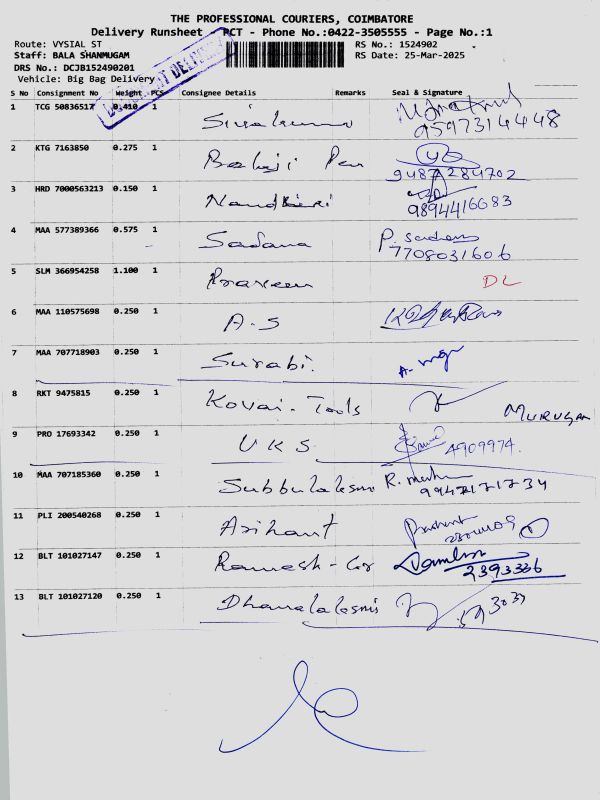 THE PROFESSIONAL COURIERS, COIMBATORE
Delivery Runsheet - PCT - Phone No.:0422-3505555 - Page No.:1
Route: VYSIAL ST RS No.: 1524902
Staff: BALA SHANMUGAM RS Date: 25-Mar-2025
DRS No.: DCJB152490201
Vehicle: Big Bag Delivery
S No Consignment No Weight PCS Consignee Details Remarks Seal & Signature
1 TCG 50836517 0.410 1 Sivakumar
9597314448
2 KTG 7163850 0.275 1 Balaji Pen
9487284702
3 HRD 7000563213 0.150 1
9894416683
4 MAA 577389366 0.575 1 Sadana P. Sadana
7708031606
5 SLM 366954258 1.100 1 Praveen DL
6 MAA 110575698 0.250 1 A-S
7 MAA 707718903 0.250 1 Surabi.
8 RKT 9475815 0.250 1 Kovai-Tools MURUGAN
9 PRO 17693342 0.250 1 UKS 4909974.
10 MAA 707185360 0.250 1 Subbulaksmi
11 PLI 200540268 0.250 1 Arihant Prashant
12 BLT 101027147 0.250 1 Ramesh-
2393336
13 BLT 101027120 0.250 1 Dhanalaksmi